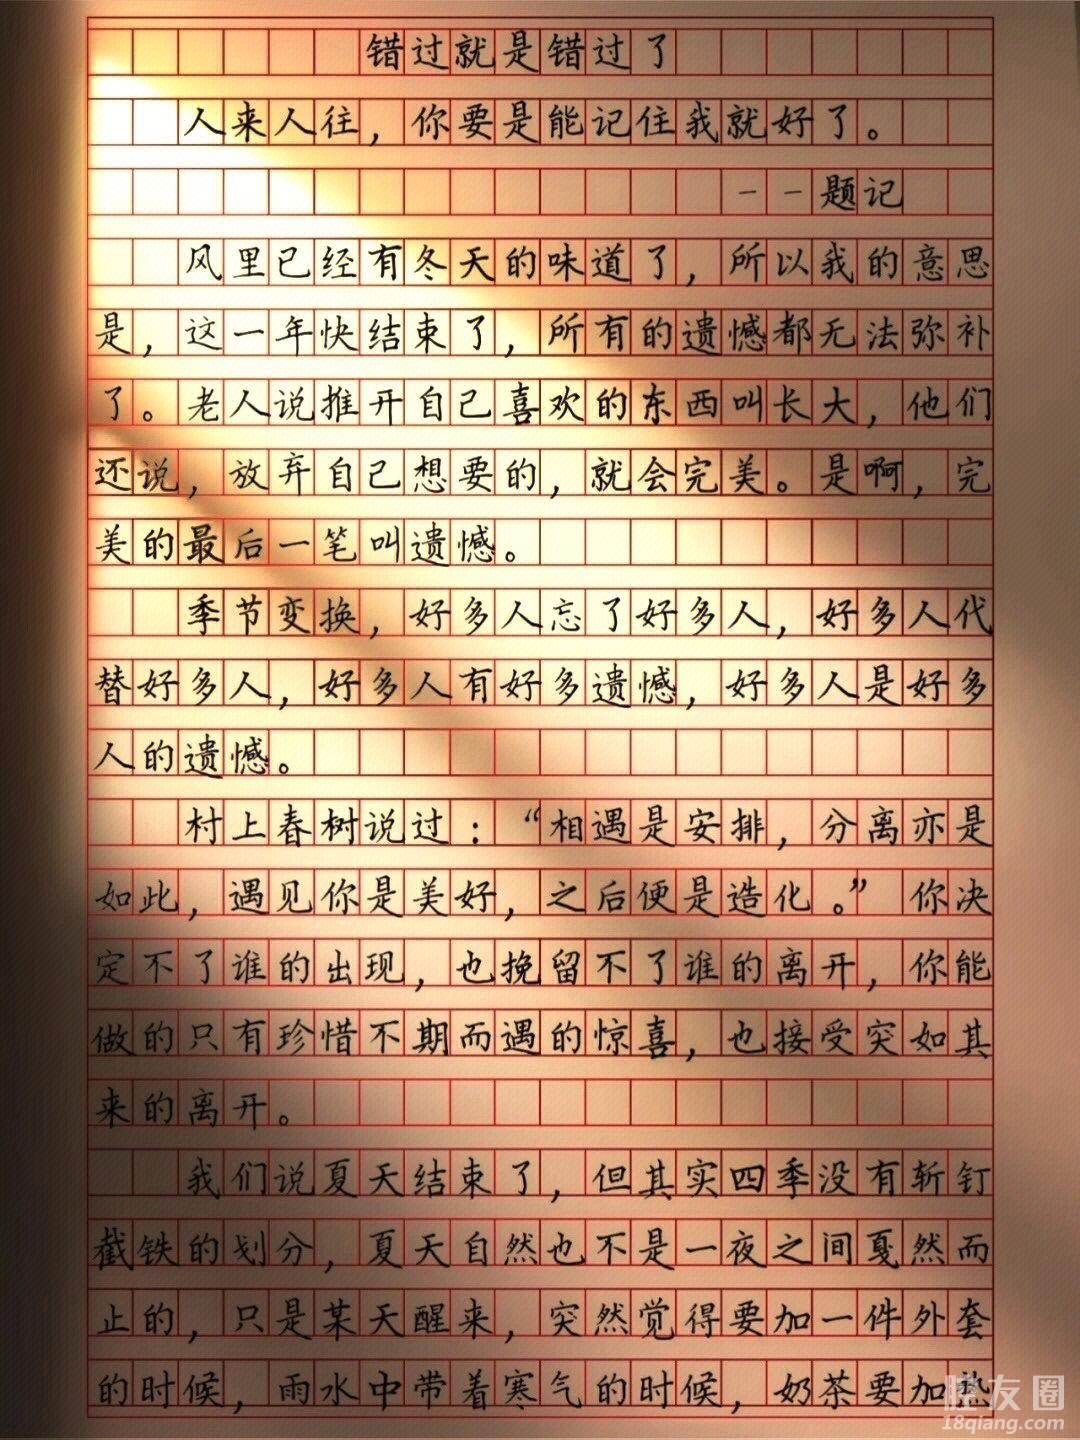 错过就是错过了
人来人往，你要是能记住我就好了。
--题记
风里已经有冬天的味道了，所以我的意思
是，这一年快结束了，所有的遗憾都无法弥补
了。老人说推开自己喜欢的东西叫长大，他们
还说，放弃自己想要的，就会完美。是啊，完
美的最后一笔叫遗憾。
季节变换，好多人忘了好多人，好多人代
替好多人，好多人有好多遗憾，好多人是好多
人的遗憾。
村上春树说过：“相遇是安排，分离亦是
如此，遇见你是美好，之后便是造化。”你决
定不了谁的出现，也挽留不了谁的离开，你能
做的只有珍惜不期而遇的惊喜，也接受突如其
来的离开。
我们说夏天结束了，但其实四季没有斩钉
截铁的划分，夏天自然也不是一夜之间戛然而
止的，只是某天醒来，突然觉得要加一件外套
的时候，雨水中带着寒气的时候，奶茶要加热
腔友圈
18qiang.com